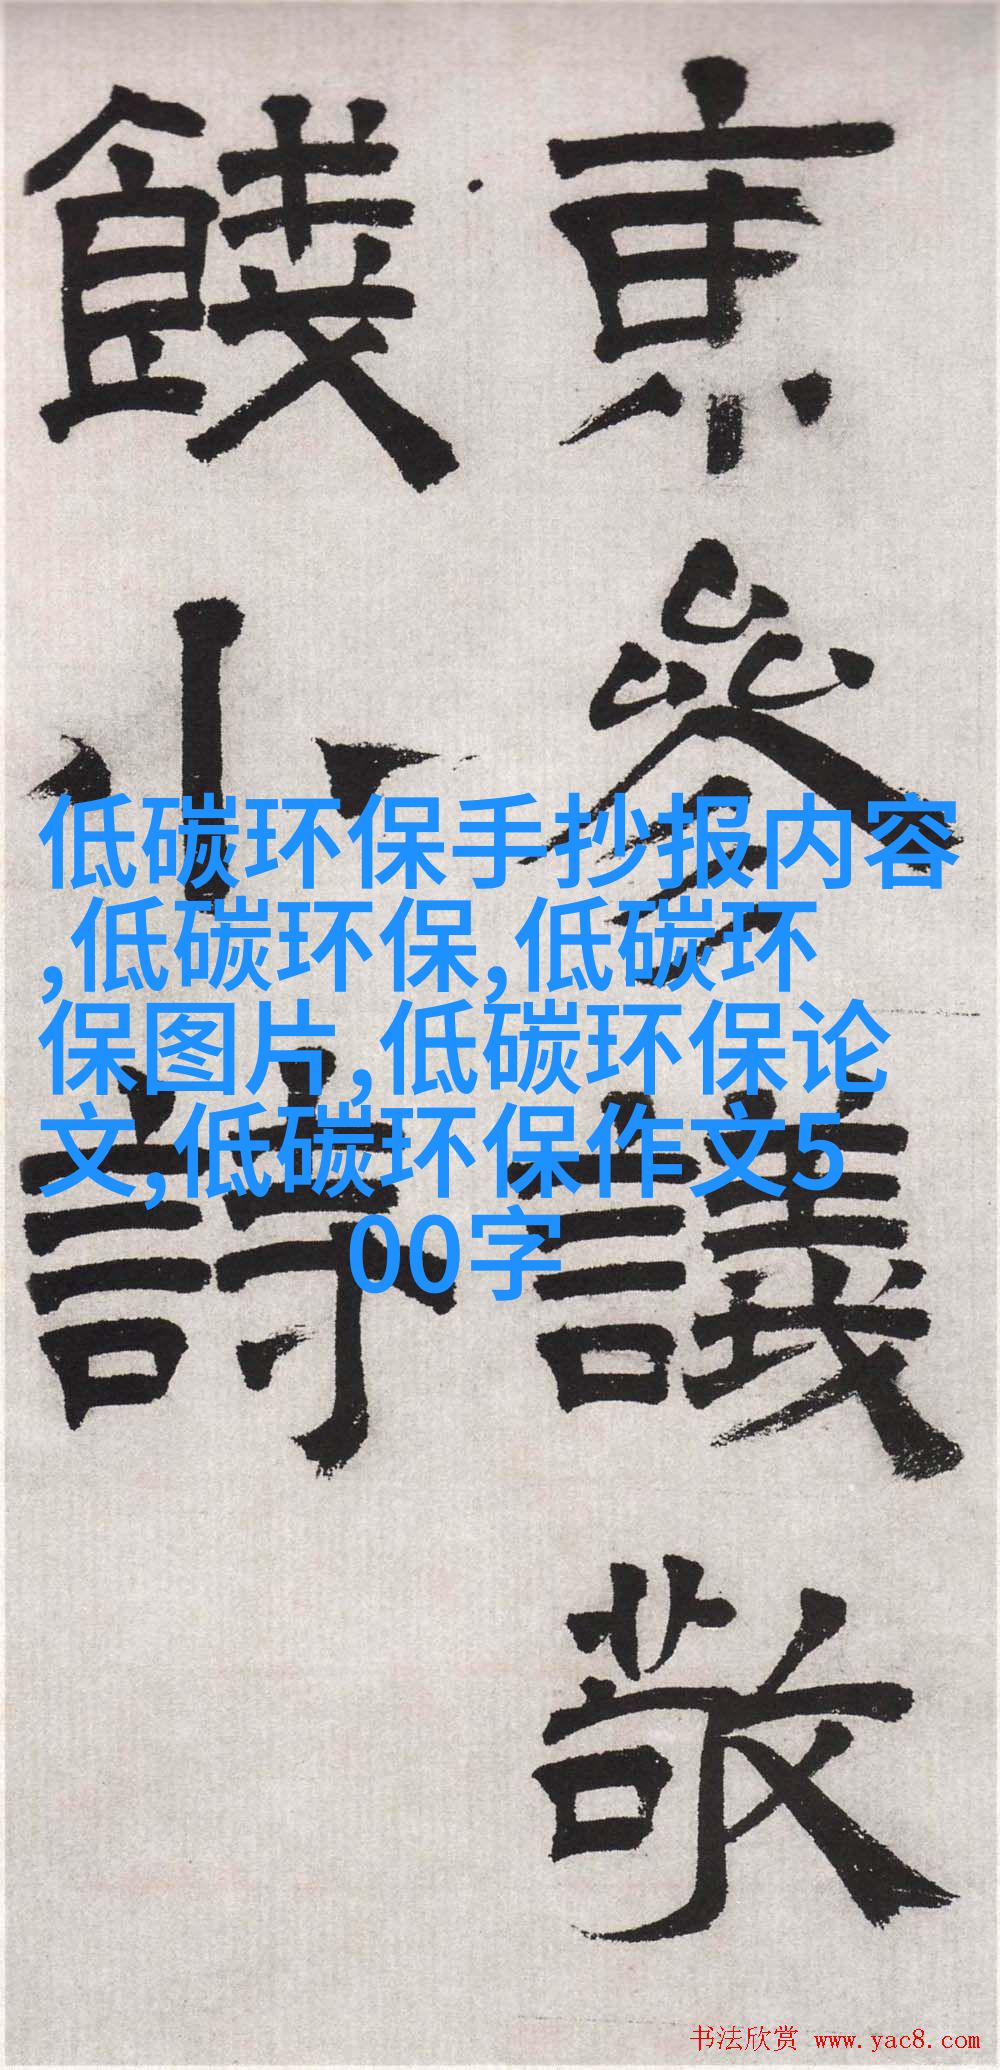 東參議敬
餞小詩
低碳环保手抄报内容
,低碳环保,低碳环
保图片,低碳环保论
文,低碳环保作文5
00字
书法欣赏 www.yac8.com